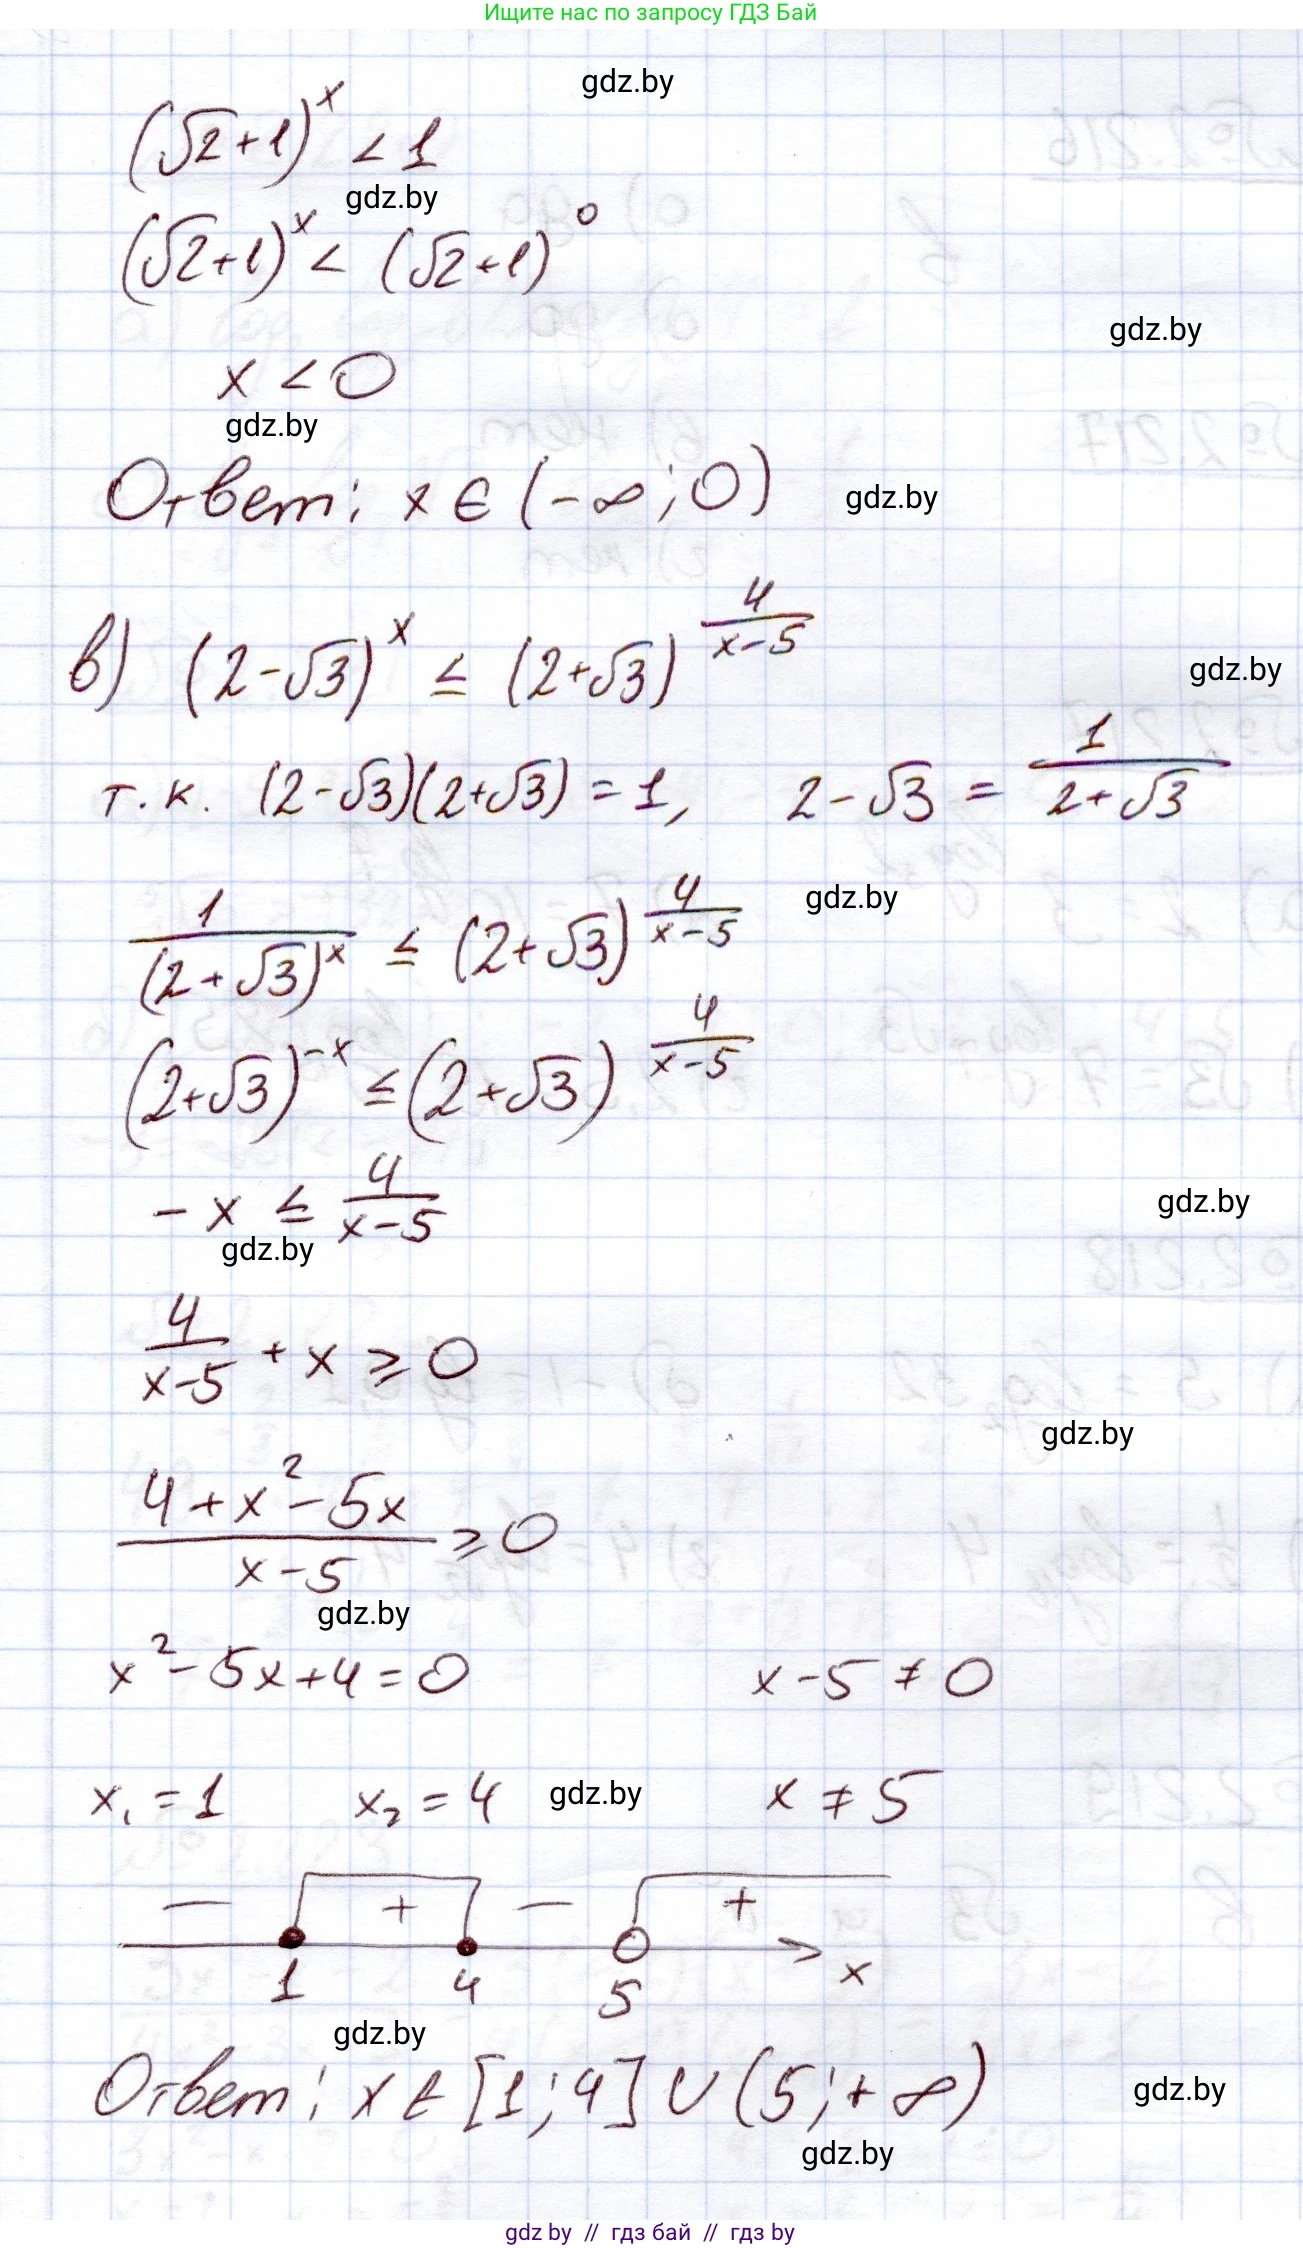 Ищите нас по запросу ГДЗ Бай
gdz.by
(√2+1)^x < 1
gdz.by
(√2+1)^x < (√2+1)^0
gdz.by
x < 0
gdz.by
Ответ: x ∈ (-∞; 0)
gdz.by
в) (2-√3)^x ≤ (2+√3)^(4/(x-5))
gdz.by
т.к. (2-√3)(2+√3) = 1, 2-√3 = 1/(2+√3)
1/(2+√3)^x ≤ (2+√3)^(4/(x-5))
gdz.by
(2+√3)^(-x) ≤ (2+√3)^(4/(x-5))
-x ≤ 4/(x-5)
gdz.by
gdz.by
4/(x-5) + x ≥ 0
gdz.by
(4+x²-5x)/(x-5) ≥ 0
gdz.by
x²-5x+4=0 x-5≠0
x₁=1 x₂=4 gdz.by x≠5
− + − +
1 4 5 x
gdz.by
Ответ: x ∈ [1; 4] ∪ (5; +∞)
gdz.by
gdz.by
gdz by // гдз бай // гдз by